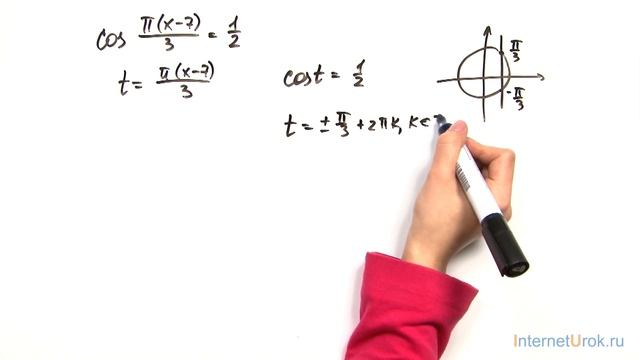 cos π(x-7)/3 = 1/2
t = π(x-7)/3
cost = 1/2
t = ± π/3 + 2πk, k∈
π/3
-π/3
InternetUrok.ru